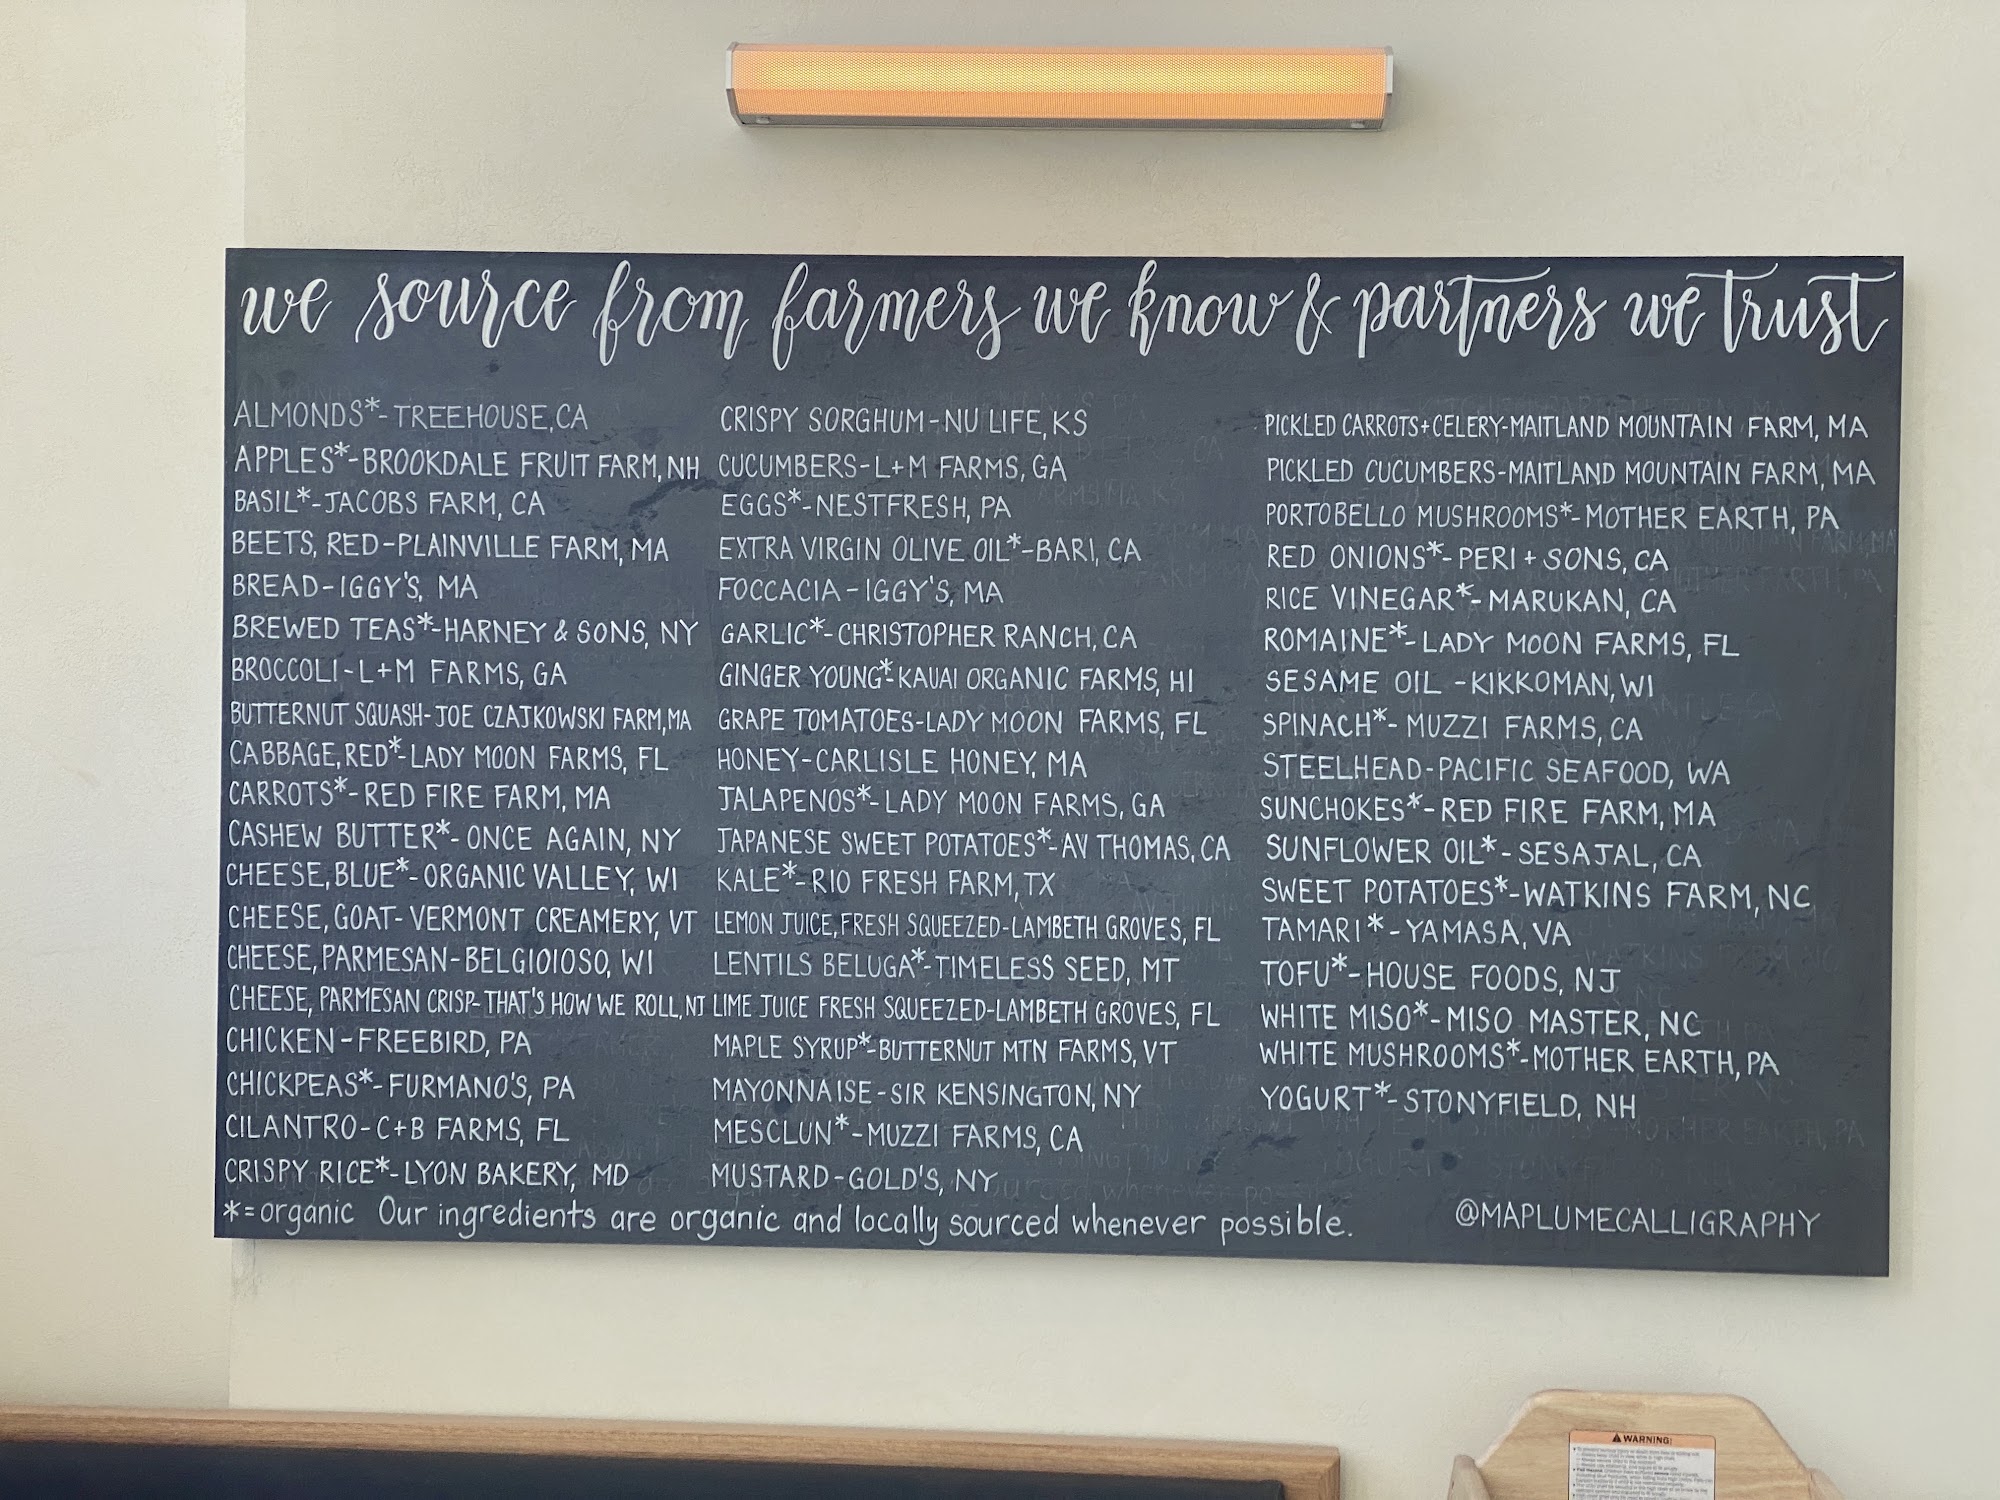 we source from farmers we know & partners we trust
ALMONDS*-TREEHOUSE, CA
APPLES*-BROOKDALE FRUIT FARM, NH
BASIL*-JACOBS FARM, CA
BEETS, RED-PLAINVILLE FARM, MA
BREAD-IGGY'S, MA
BREWED TEAS*-HARNEY & SONS, NY
BROCCOLI-L+M FARMS, GA
BUTTERNUT SQUASH-JOE CZAJKOWSKI FARM, MA
CABBAGE, RED*-LADY MOON FARMS, FL
CARROTS*-RED FIRE FARM, MA
CASHEW BUTTER*-ONCE AGAIN, NY
CHEESE, BLUE*-ORGANIC VALLEY, WI
CHEESE, GOAT-VERMONT CREAMERY, VT
CHEESE, PARMESAN-BELGIOIOSO, WI
CHEESE, PARMESAN CRISP-THAT'S HOW WE ROLL, NJ
CHICKEN-FREEBIRD, PA
CHICKPEAS*-FURMANO'S, PA
CILANTRO-C+B FARMS, FL
CRISPY RICE*-LYON BAKERY, MD
CRISPY SORGHUM-NU LIFE, KS
CUCUMBERS-L+M FARMS, GA
EGGS*-NESTFRESH, PA
EXTRA VIRGIN OLIVE OIL*-BARI, CA
FOCCACIA-IGGY'S, MA
GARLIC*-CHRISTOPHER RANCH, CA
GINGER YOUNG*-KAUAI ORGANIC FARMS, HI
GRAPE TOMATOES-LADY MOON FARMS, FL
HONEY-CARLISLE HONEY, MA
JALAPENOS*-LADY MOON FARMS, GA
JAPANESE SWEET POTATOES*-AV THOMAS, CA
KALE*-RIO FRESH FARM, TX
LEMON JUICE, FRESH SQUEEZED-LAMBETH GROVES, FL
LENTILS BELUGA*-TIMELESS SEED, MT
LIME JUICE FRESH SQUEEZED-LAMBETH GROVES, FL
MAPLE SYRUP*-BUTTERNUT MTN FARMS, VT
MAYONNAISE-SIR KENSINGTON, NY
MESCLUN*-MUZZI FARMS, CA
MUSTARD-GOLD'S, NY
PICKLED CARROTS+CELERY-MAITLAND MOUNTAIN FARM, MA
PICKLED CUCUMBERS-MAITLAND MOUNTAIN FARM, MA
PORTOBELLO MUSHROOMS*-MOTHER EARTH, PA
RED ONIONS*-PERI+SONS, CA
RICE VINEGAR*-MARUKAN, CA
ROMAINE*-LADY MOON FARMS, FL
SESAME OIL-KIKKOMAN, WI
SPINACH*-MUZZI FARMS, CA
STEELHEAD-PACIFIC SEAFOOD, WA
SUNCHOKES*-RED FIRE FARM, MA
SUNFLOWER OIL*-SESAJAL, CA
SWEET POTATOES*-WATKINS FARM, NC
TAMARI*-YAMASA, VA
TOFU*-HOUSE FOODS, NJ
WHITE MISO*-MISO MASTER, NC
WHITE MUSHROOMS*-MOTHER EARTH, PA
YOGURT*-STONYFIELD, NH
*=organic Our ingredients are organic and locally sourced whenever possible.
@MAPLUMECALLIGRAPHY
WARNING!